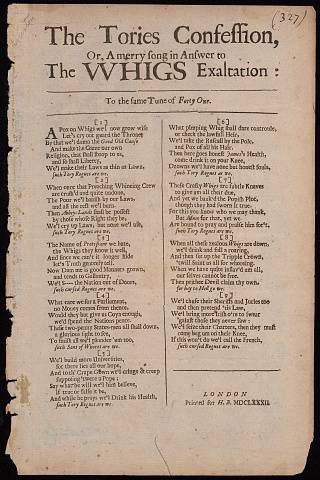 (327)
The Tories Confession,
Or, A merry song in Answer to
The WHIGS Exaltation:
To the same Tune of Forty One.
[1]
A Pox on Whigs we'l now grow wise
Let's cry out guard the Throne
By that we'l damn the Good Old Cause
And make the Game our own
Religion, that shall stoop to us,
and so shall Liberty,
We'l make their Laws as thin as Lawn,
such Tory Rogues are we.
[2]
When once that Preaching Whineing Crew
are crush'd and quite undone,
The Poor we'l banish by our Laws,
and all the rest we'l burn.
Then Abby-Lands shall be possest
by those whose Right they be,
We'l cry up Laws, but none we'l use,
such Tory Rogues are we.
[3]
The Name of Protestant we hate,
the Whigs they know it well,
And since we can't it longer hide
let's Truth genteely tell.
Now Dam me is good Manners grown,
and tends to Gallantry,
We'l the Nation out of Doors,
such cursed Rogues are we.
[4]
What care we for a Parliament,
no Money comes from thence,
Would they but give us Coyn enough,
we'd spend the Nations pence.
These two-penny States-men all shall down,
a glorious sight to see,
To finish all we'l plunder 'em too,
such Sons of Whores are we.
[5]
We'l build more Universities,
for there lies all our hope,
And to th' Crape Gown we'l cringe & creep
supposing 'twere a Pope:
Say what he will we'l him believe,
if true or false it be,
And while he preys we'l Drink his Health,
such Tory Rogues are we.
[6]
What pimping Whig shall dare controule,
or check the lawfull Heir,
We'l take the Rascall by the Pole,
and Pox of all his Race.
Then here goes honest James's Health,
come drink it on your Knee,
Dzowns we'l have none but honest Souls,
such Tory Rogues as we.
[7]
These Crafty Whigs are subtle Knaves
to give um all their due,
And yet we baulk'd the Popish Plot,
though they had sworn it true.
For this you know who we may thank,
But Mum for that, yet we
Are bound to pray and praise him for't,
such Tory Rogues are we.
[8]
When all these zealous Whigs are down,
we'l drink and fall a roaring,
And then set up the Tripple Crown,
'twill Saint us all for whoreing.
When we have quite insnar'd um all,
our selves cannot be free.
Then prithee Devil claim thy own,
for hey to Hell go we.
[9]
We'l choose their Sheriffs and Juries too
and then pretend 'tis Law,
We'l bring more Irish o're to swear
'gainst those they never saw:
We'l seize their Charters, then they must
come beg um on their Knee,
If this won't do we'l call the French,
such cursed Rogues are we.
LONDON
Printed for H. B. MDCLXXXII.